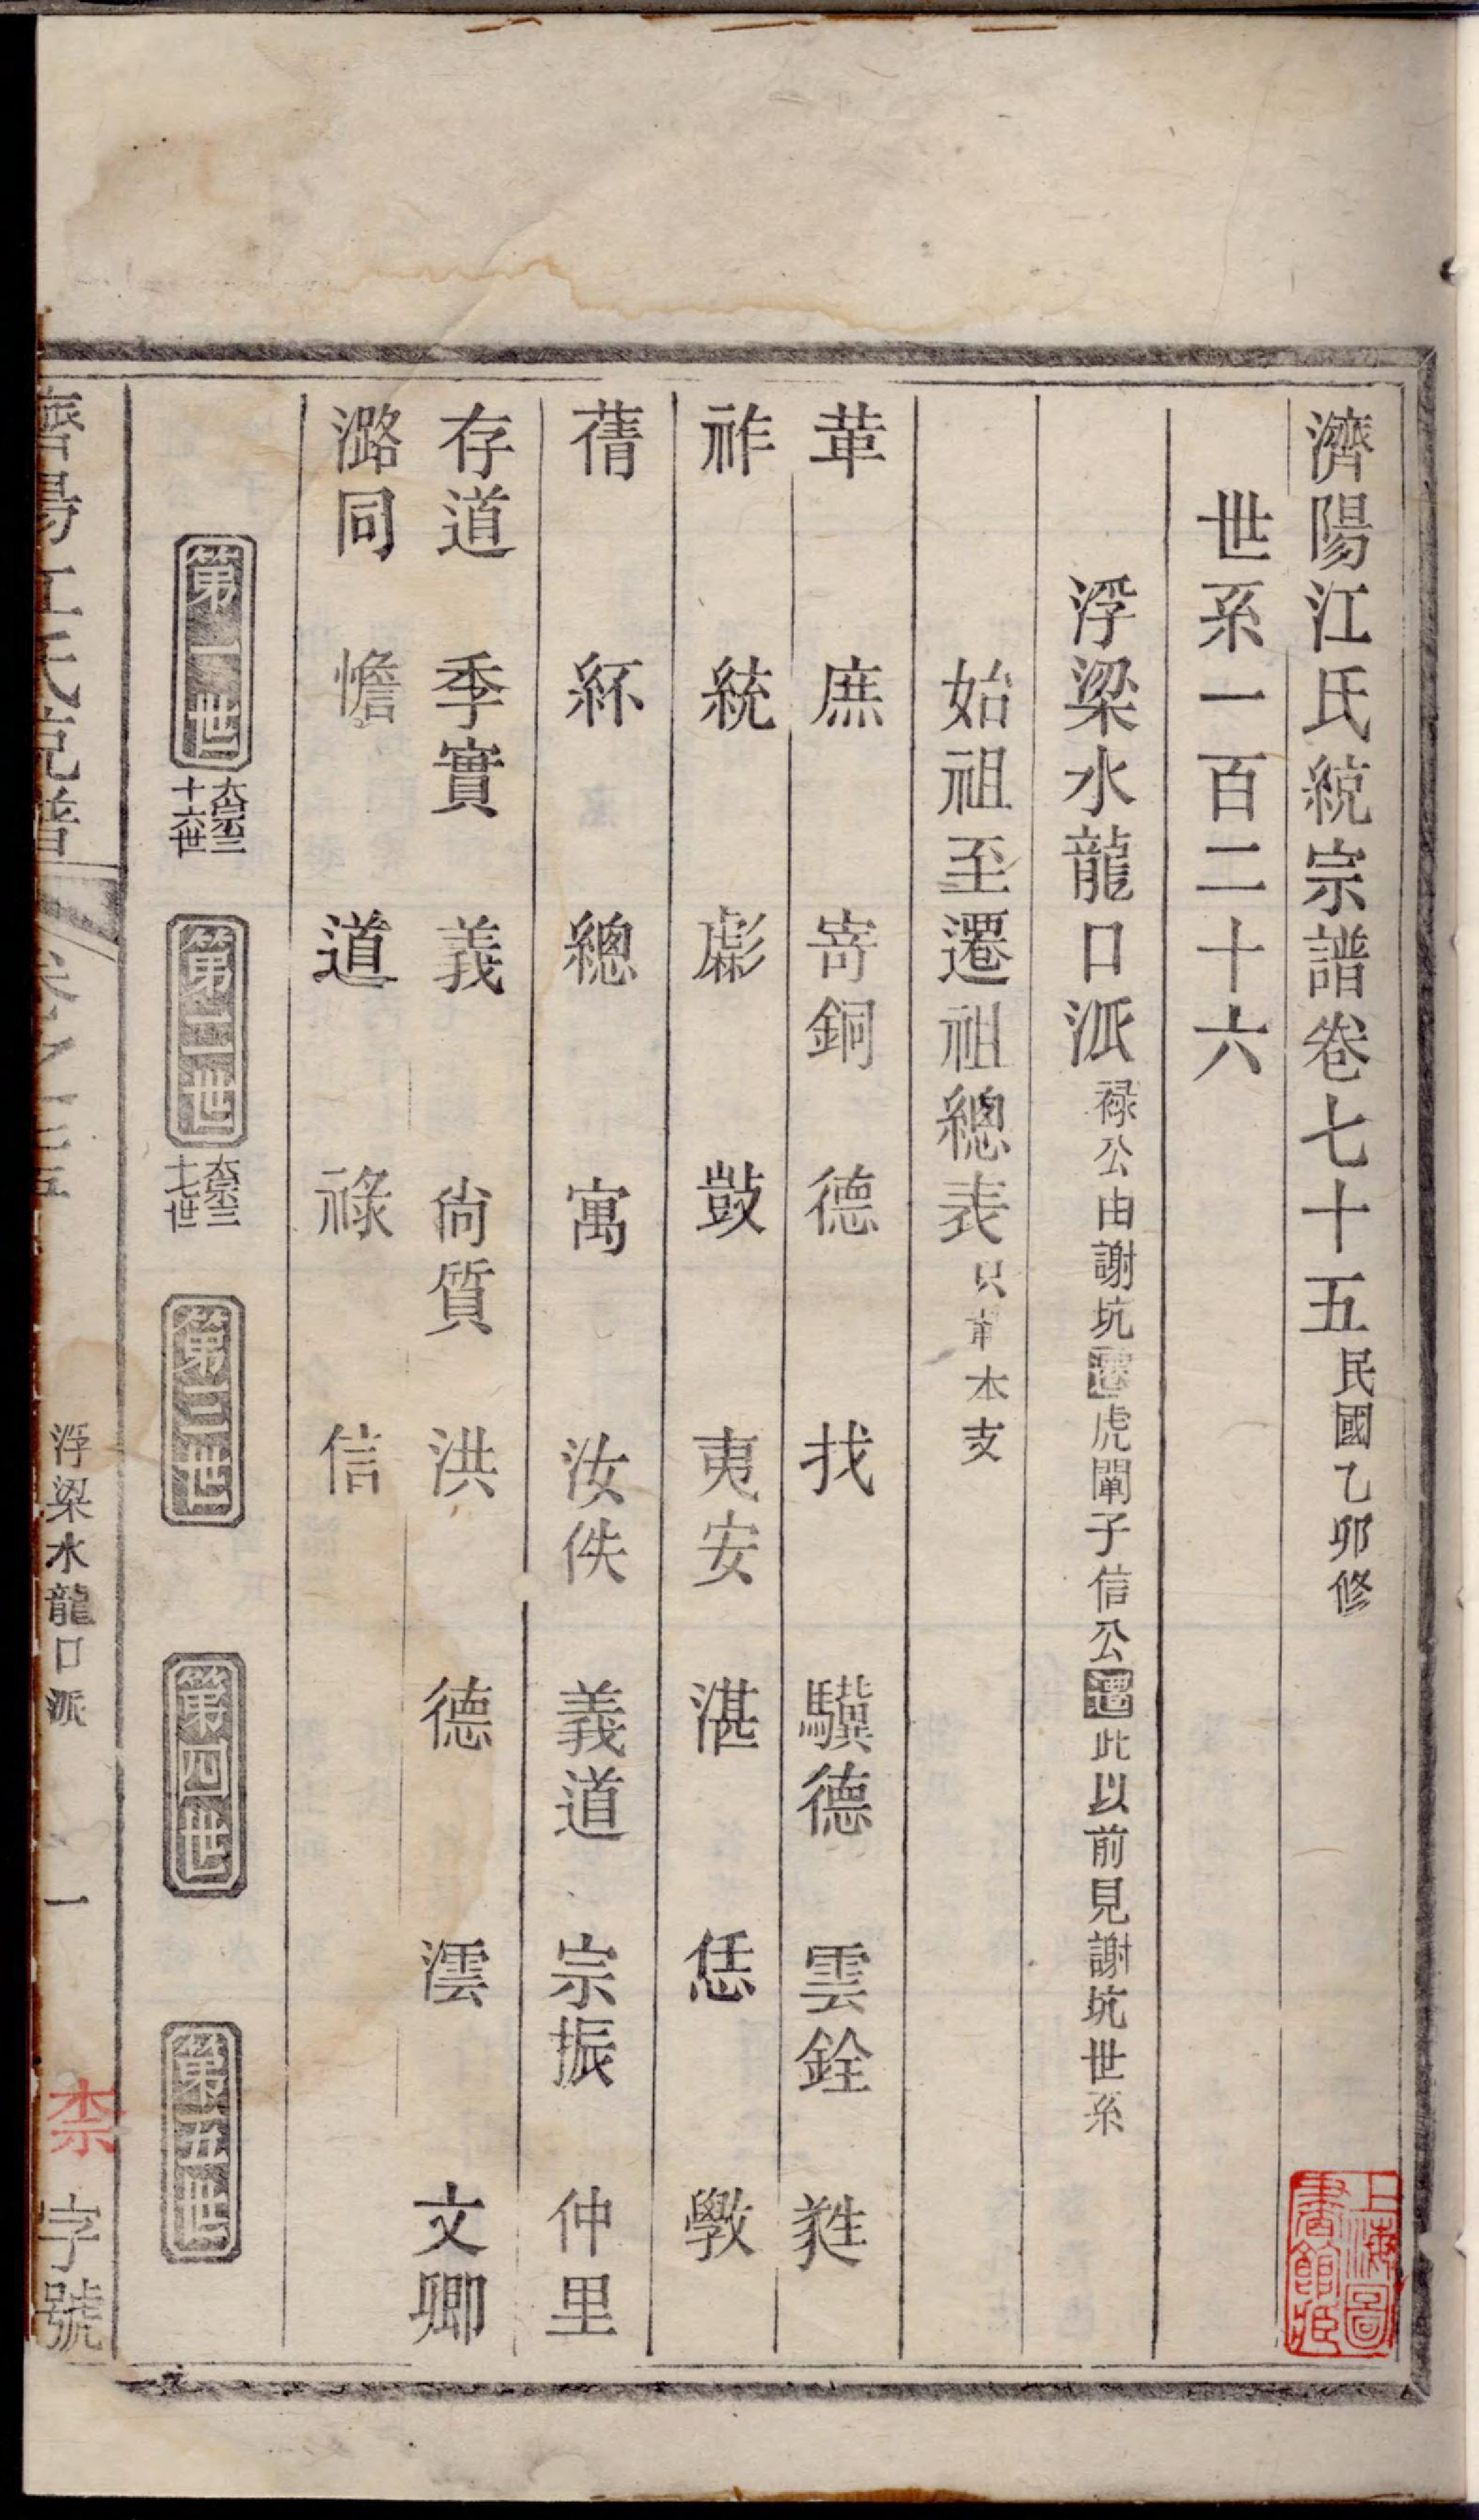 濟陽江氏統宗譜卷七十五民國乙卯修
世系一百二十六
浮梁水龍口派祿公由謝坑遷虎闈子信公遷此以前見謝坑世系
始祖至遷祖總表只書本支
革 庶 嵜銅 德 找 驥德 雲銓 甤
祚 統 彪 鼓 夷安 湛 恁 斆
蒨 紑 總 寓 汝佚 義道 宗振 仲里
存道 季實 義 尚質 洪 德 澐 文卿
潞同 憺 道 祿 信
第一世大宗三十六世
第二世大宗三十七世
第三世
第四世
第五世
濟陽江氏統譜 卷七十五 浮梁水龍口派 一 柰字號
上海圖書館藏